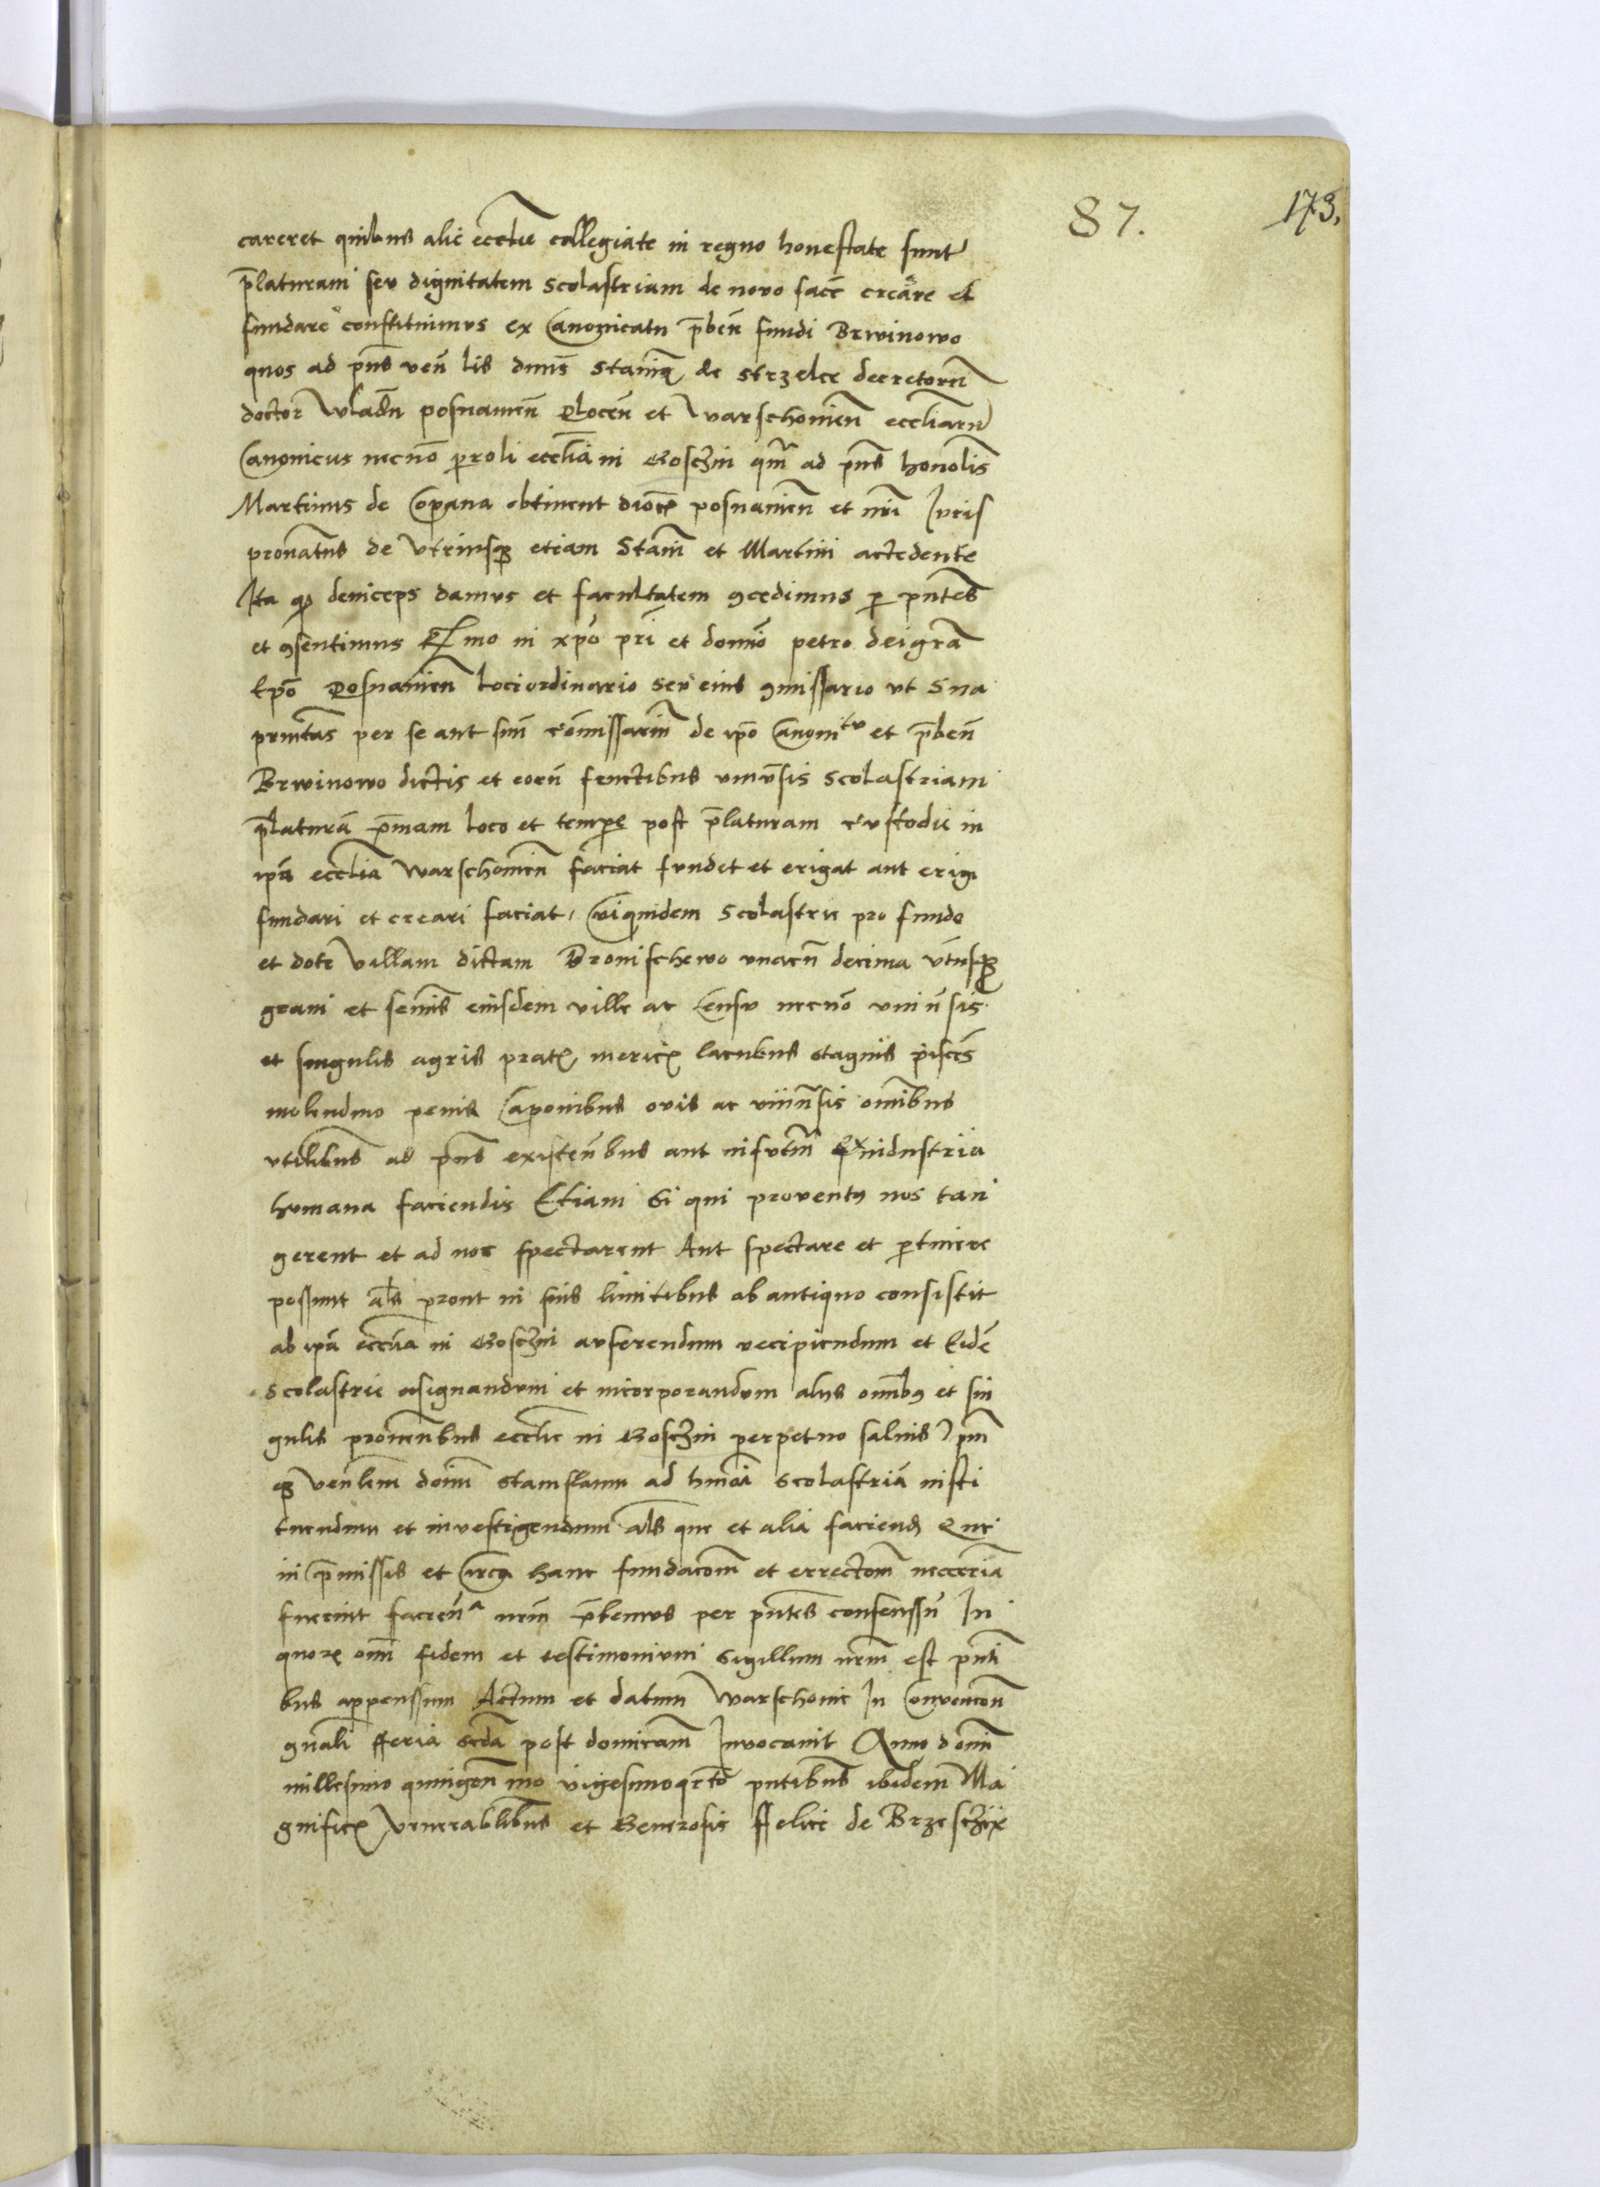 87.
173.
careret quibus alie ecclie collegiate in regno honestate sunt
platuram seu dignitatem scolastriam de novo facere creare et
fundare constituimus ex Canonicatu pbeñ fundi Brwinowo
quos ad pñs veñ lis dñus Stanisl. de Strzelce decretorũ
doctor Vladñ posnanieñ Ploceñ et Warschonieñ eccliarũ
Canonicus necnõ parroli ecclia in Goschin qm̃ ad pñs honolis
Martinus de Copana obtinent dioceᵉ posnanieñ et nr̃i Juris
pronatus de Utriusqꝫ etiam Stanisl. et Martini accedente
Ita qꝫ deniceps damus et facultatem ꝯcedimus p pñtes
et ꝯsentimus Rmo in xpõ pri et domiõ petro dei gr̃a
Epõ Posnanieñ loci ordinario seu eius ꝯmissario ut Sua
pr̃nitas per se aut suũ cõmissariũ de ipõ Canonitu et pbeñ
Brwinowo dictis et eorũ fructibus univsis scolastriam
platurã pr̃mam loco et tempe post platuram custodie in
ipã ecclia Warschonieñ faciat fundet et erigat aut erigi
fundari et creari faciat, Cuiquidem scolastrie pro fundo
et dote Villam dictam Bronischewo unacũ decima utriusqꝫ
grani et seminis eiusdem ville ac Censu necnõ univsis
et singulis agris pratis mericis lacubus stagnis piscis
molendino penis Caponibus ovis ac univsis omibus
utilibus ad pñs existeñbus aut infutm̃ Ex industria
humana faciendis Etiam Si qui proventus nos tan
gerent et ad nos spectarent Aut spectare et ptinere
possunt als prout in suis limitibus ab antiquo consistit
ab ipã ecclia in Goschin auferendum recipiendum et Eidẽ
scolastrie assignandum et incorporandum aliis omibꝯ et sin
gulis proveñbus ecclie in Goschin perpetuo salvis Ipm̃
qꝫ venlem doim̃ Stanislaum ad hm̃oi scolastriã insti
tuendum et investigendum als que et alia faciend Que
in pmissis et circa hanc fundacom̃ et errectom̃ necc̃ria
fuerint facieñ nr̃m pbemus per pñtes consenssũ In
quorꝫ om̃ fidem et testimonium Sigillum nr̃m est pñti
bus appenssum Actum et datum Warschonie In Convencõn
gñali Feria Scdã post domicam̃ Invocavit Anno domi
millesimo quingeñ mo vigesimoqrto pñtibus ibidem Ma
gnificis Venerabilibus et Generosis Felice de Brzeschcze